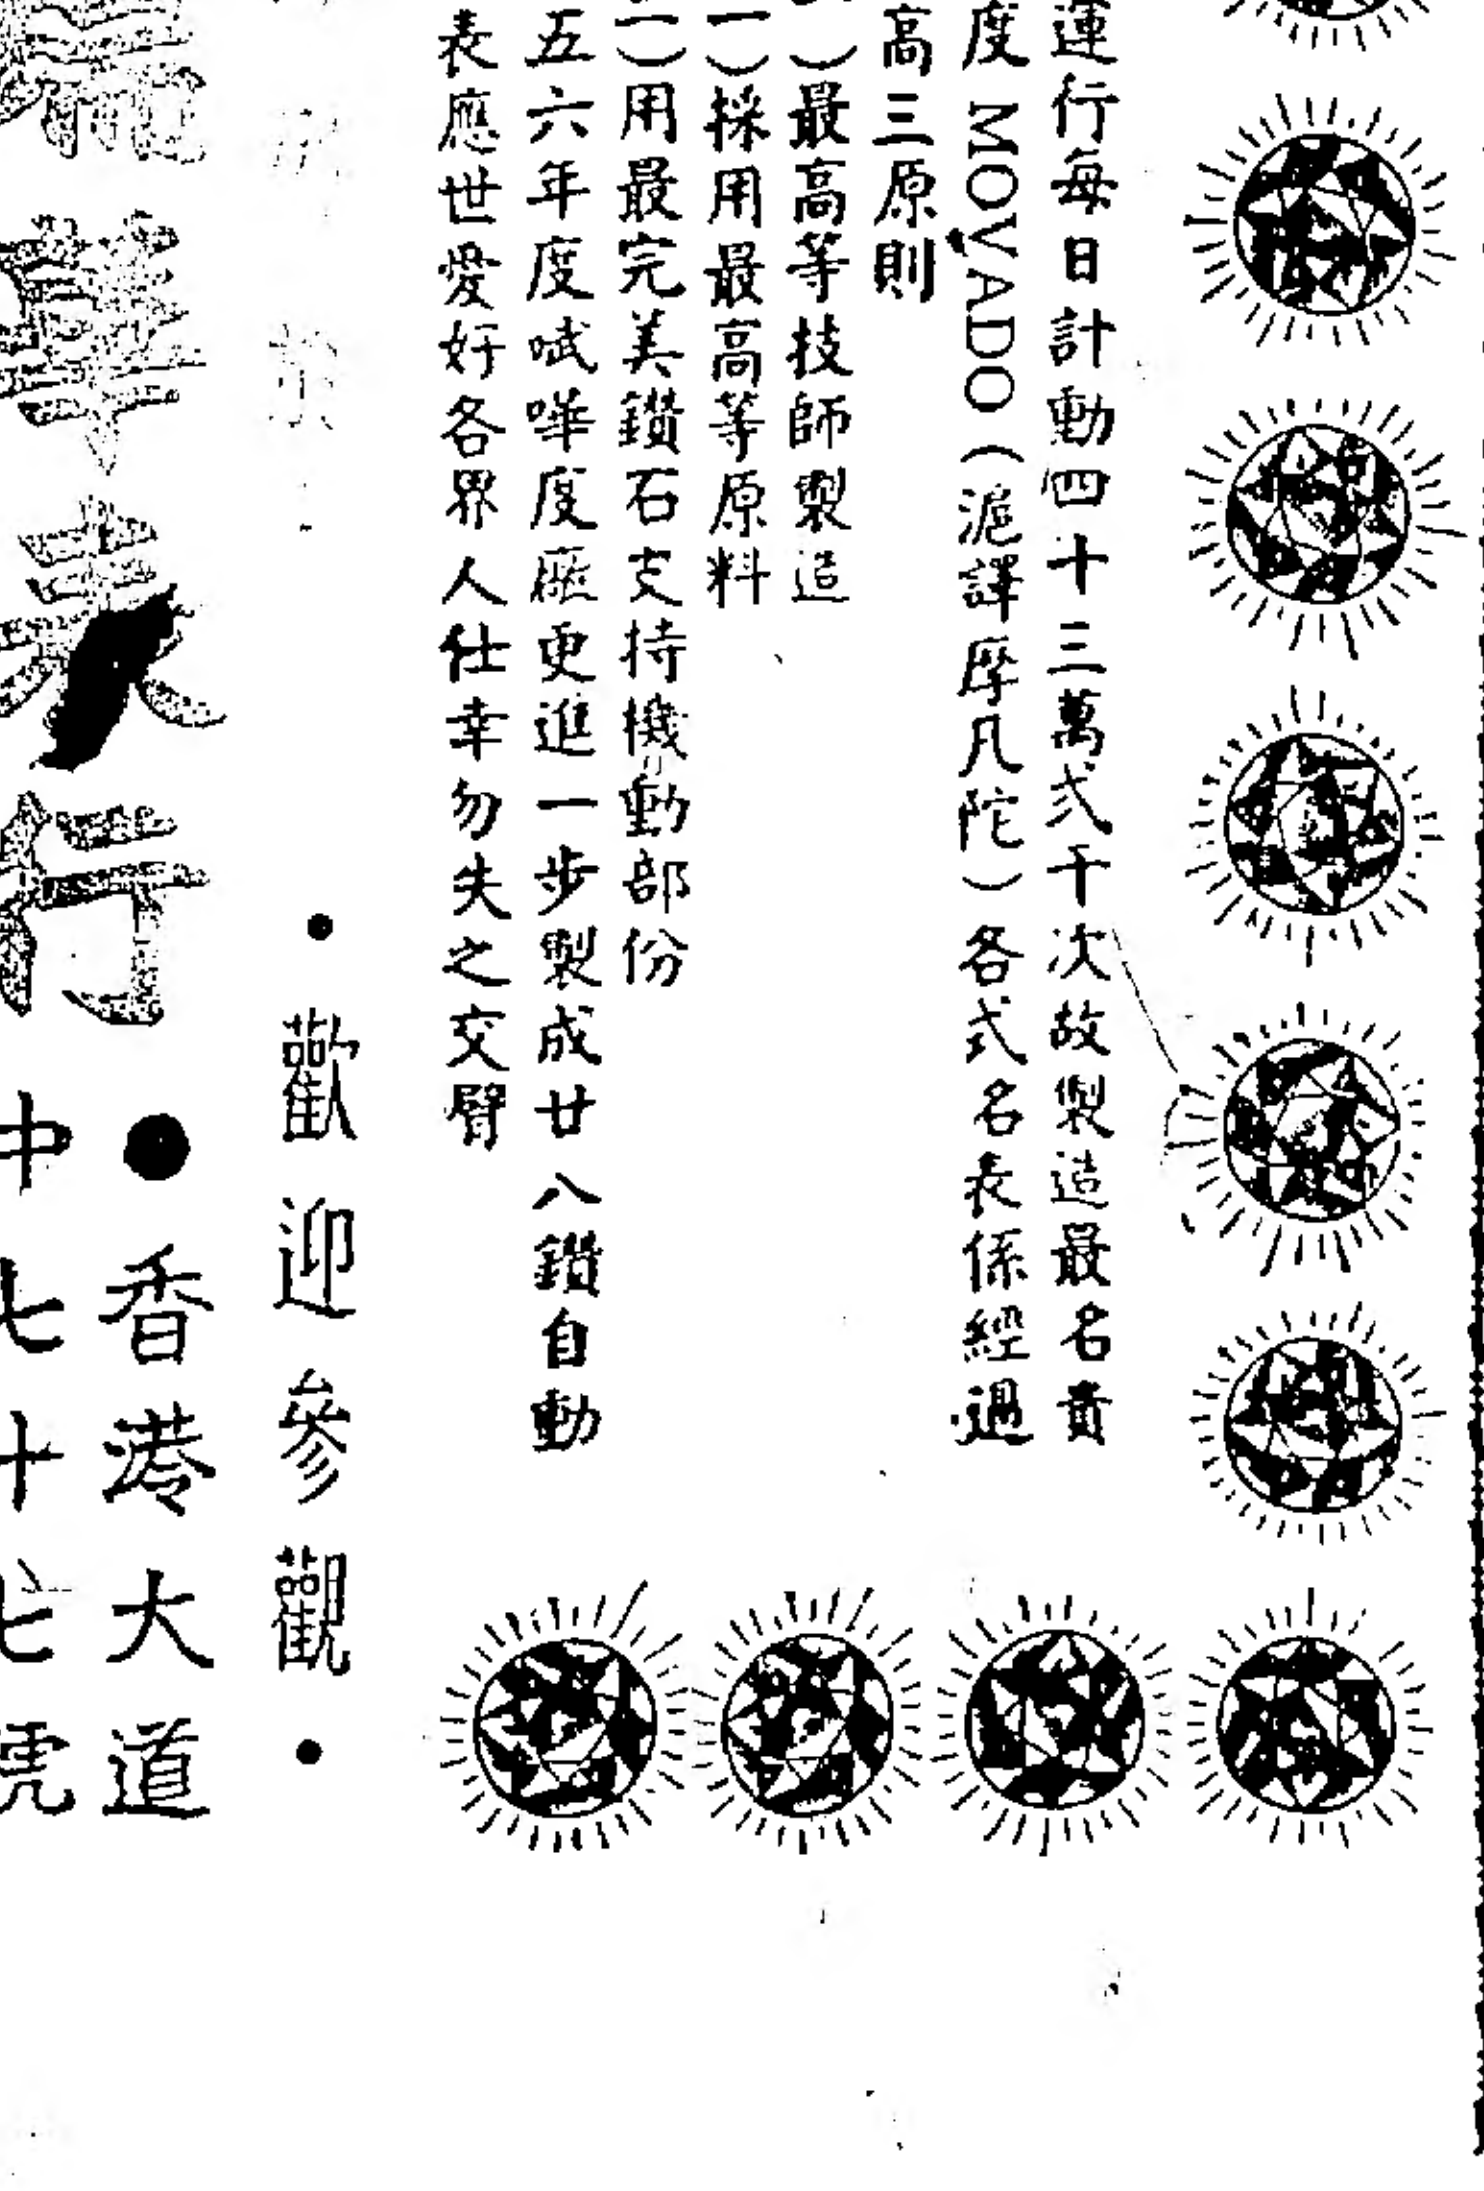 運行每日計動四十三萬弍千次故製造最名貴
度 MOVADO（滬譯摩凡陀）各式名表係經過
高三原則
）最高等技師製造
）採用最高等原料
）用最完美鑽石支持機動部份
五六年度咸嘩度廠更進一步製成廿八鑽自動
表應世愛好各界人仕幸勿失之交臂
•歡迎參觀•
華表行
●香港大道
中七十七號